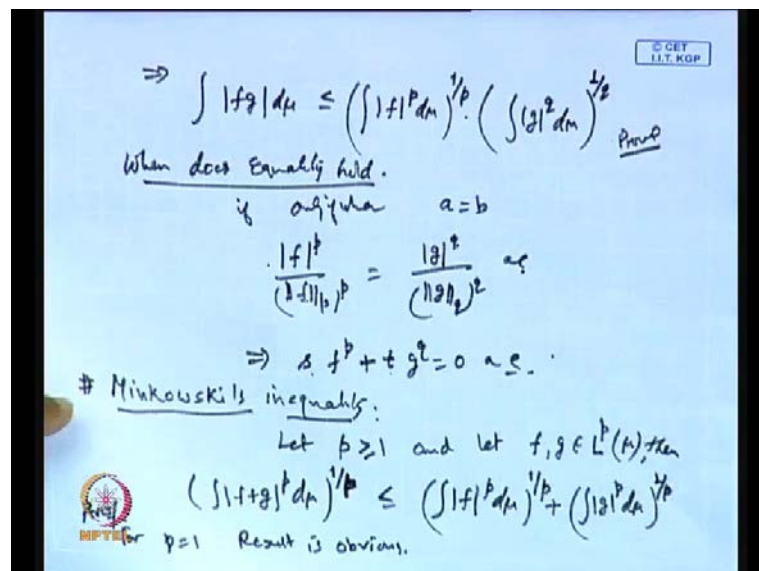 © CET
I.I.T. KGP
⇒ ∫ |fg| dμ ≤ (∫ |f|^p dμ)^{1/p} · (∫ |g|^q dμ)^{1/q}
Proved
When does Equality hold.
if only when a = b
|f|^p / (||f||_p)^p = |g|^q / (||g||_q)^q ae
⇒ s f^p + t g^q = 0 a e.
# Minkowski's inequality:
Let p ≥ 1 and let f, g ∈ L^p(μ), then
(∫ |f+g|^p dμ)^{1/p} ≤ (∫ |f|^p dμ)^{1/p} + (∫ |g|^p dμ)^{1/p}
Proof
NPTEL
for p=1 Result is obvious.